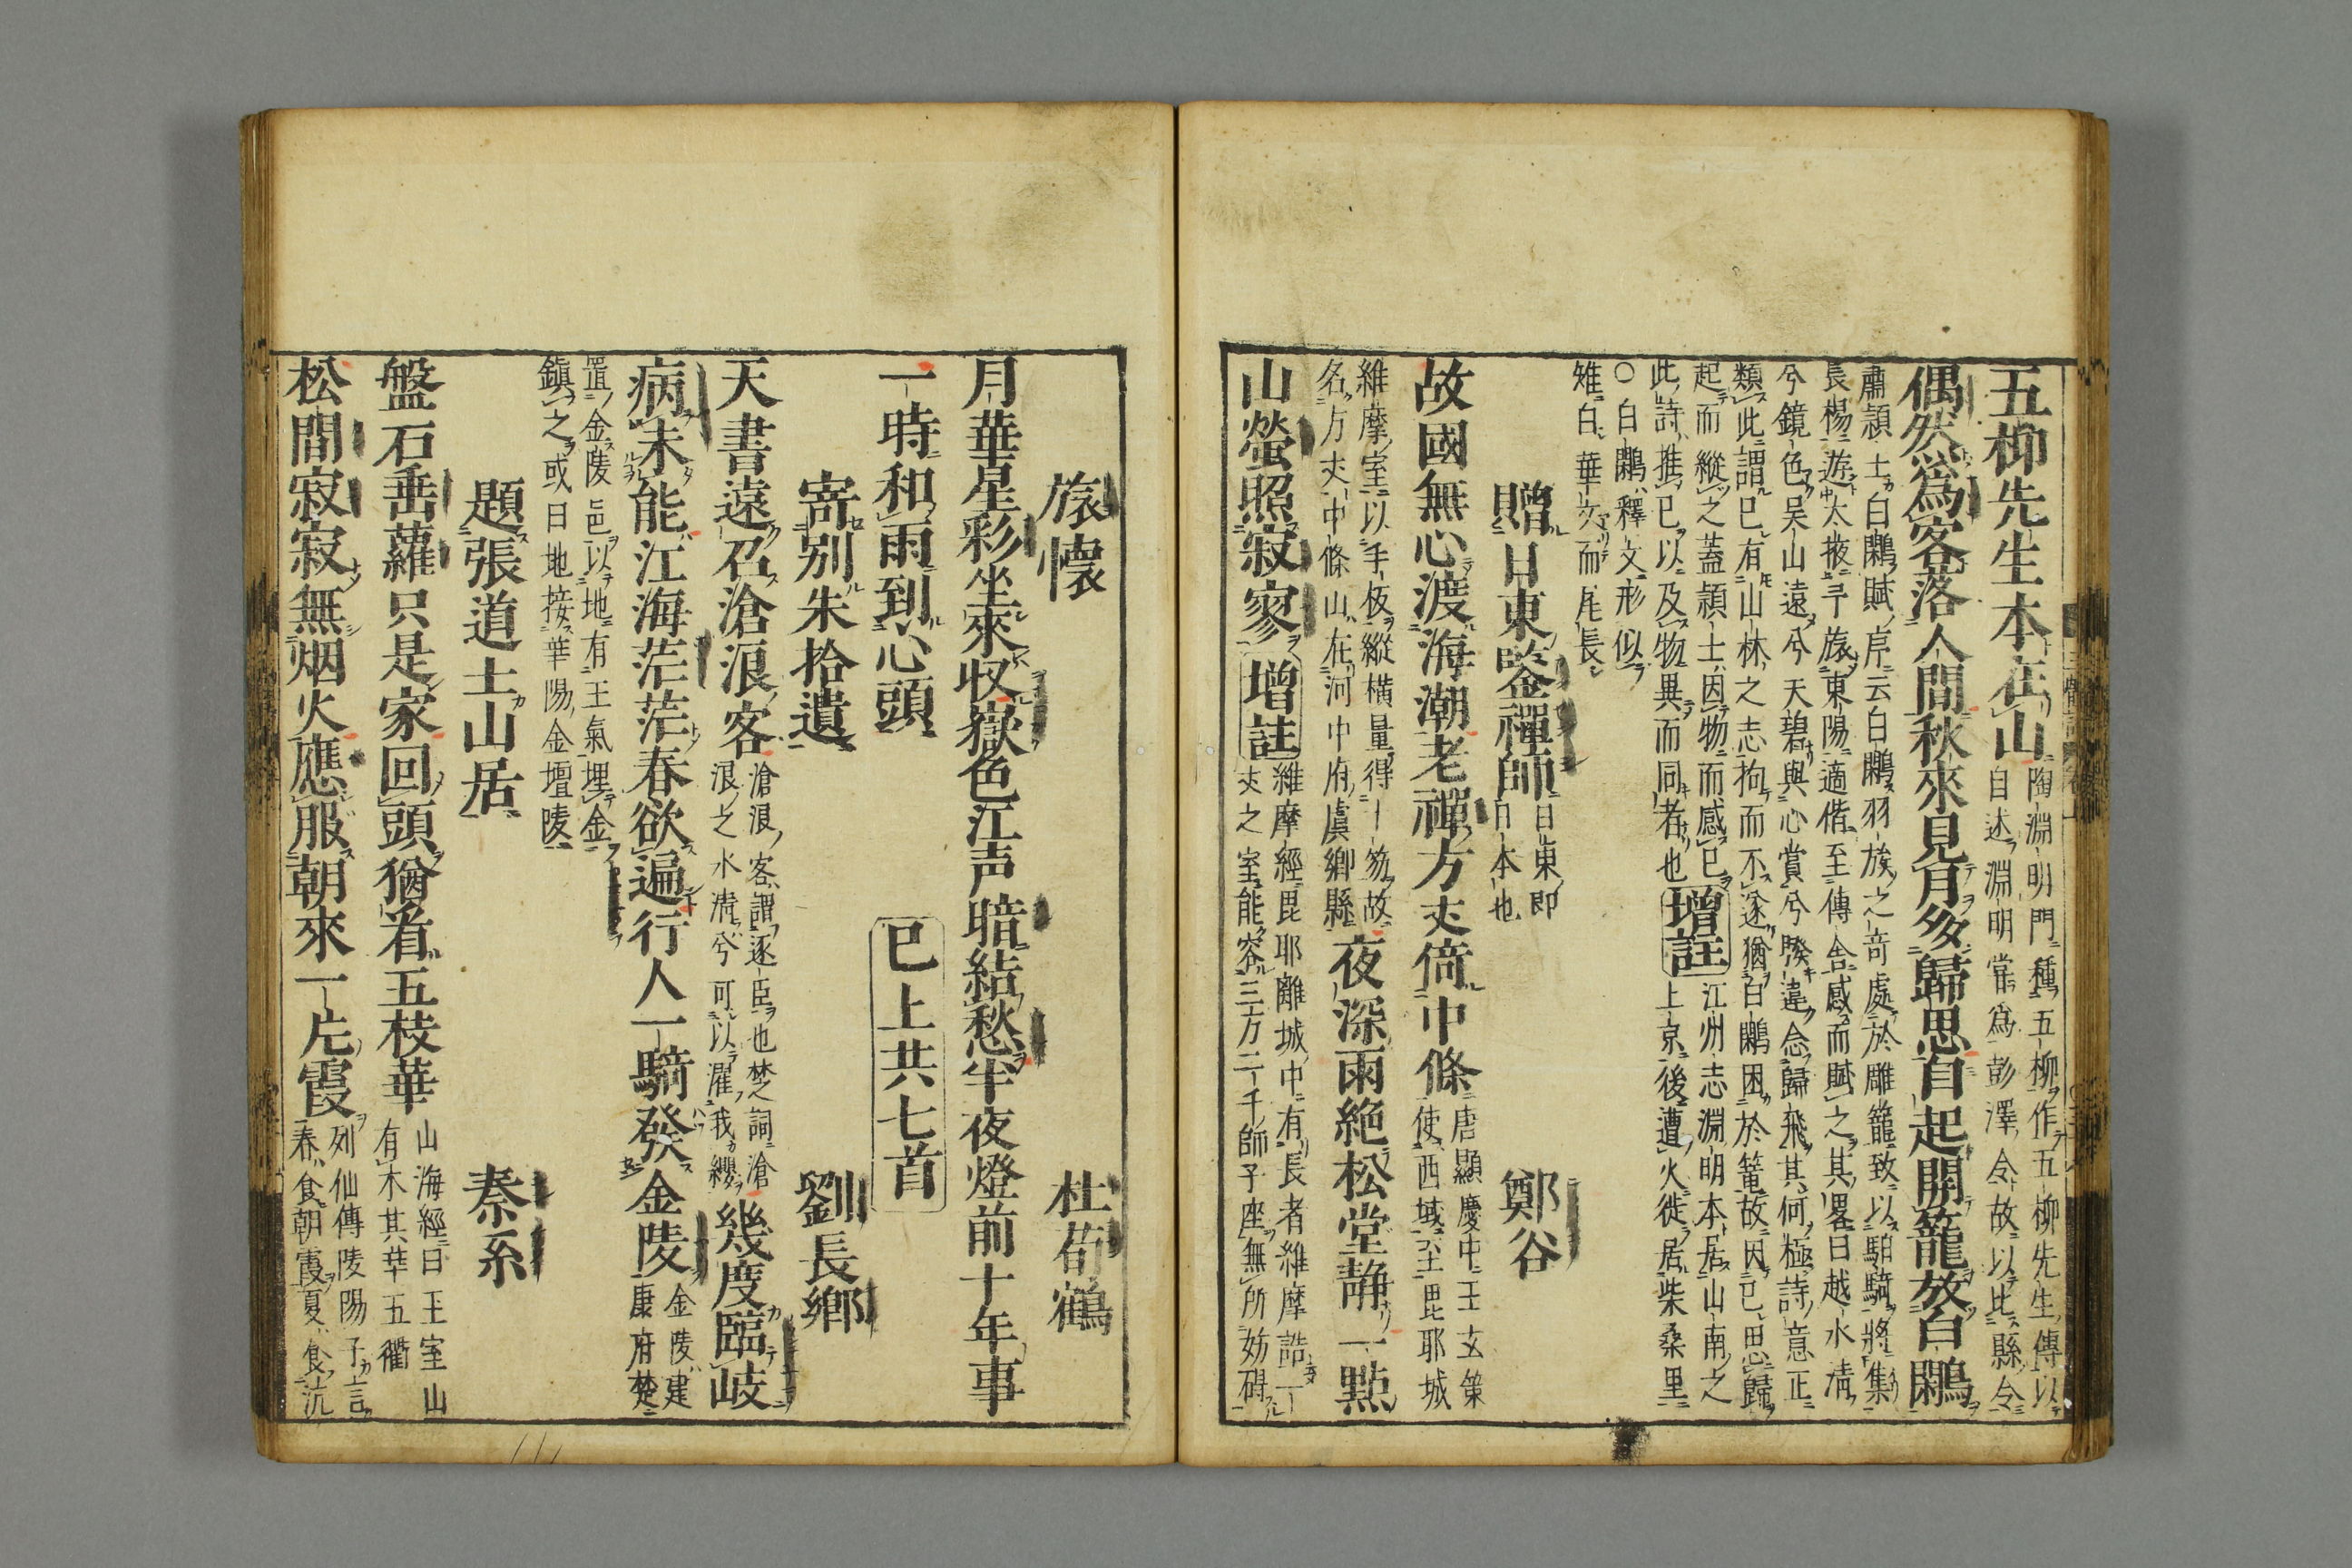 五柳先生本在山陶淵明門種五柳作五柳先生傳以
自述淵明嘗爲彭澤令故以此縣令
偶然爲客落人間秋來見月多歸思自起開籠放白鷴
肅頴士白鷴賦序云白鷴羽族之奇處於雕籠致以馹騎將集
長楊遊太掖予旅東陽適偕至傳舎感而賦之其畧曰越水淸
兮鏡色吴山遠兮天碧與心賞兮睽違念歸飛其何極詩意正
類此謂已有山林之志拘而不遂猶白鷴困於篭故因已思歸
起而縱之葢頴士因物而感已
此詩推已以及物異而同者也増註江州志淵明本居山南之
上京後遭火徙居柴桑里
○白鷴釋文形似
雉白華文而尾長
贈日東鑒禪師日東即
日本也
鄭谷
故國無心渡海潮老禪方丈倚中條唐顯慶中王玄策
使西域至毘耶城
維摩室以手板縱橫量得十笏故
名方丈中條山在河中府虞郷縣夜深雨絶松堂靜一點
山螢照寂寥増註維摩經毘耶離城中有長者維摩詰一
丈之室能容三万二千師子座無所妨碍
旅懷
杜荀鶴
月華星彩坐來収嶽色江声暗結愁半夜燈前十年事
一時和雨到心頭
已上共七首
寄别朱拾遺
劉長郷
天書遠召滄浪客滄浪客謂逐臣也楚詞滄
浪之水淸兮可以濯我纓幾度臨岐
病未能江海茫茫春欲遍行人一騎發金陵金陵建
康府楚
置金陵邑以地有王氣埋金
鎮之或曰地接華陽金壇陵
題張道士山居
秦系
盤石垂蘿只是家回頭猶看五枝華山海經曰王室山
有木其華五衢
松間寂寂無烟火應服朝來一片霞列仙傳陵陽子言
春食朝霞夏食沆